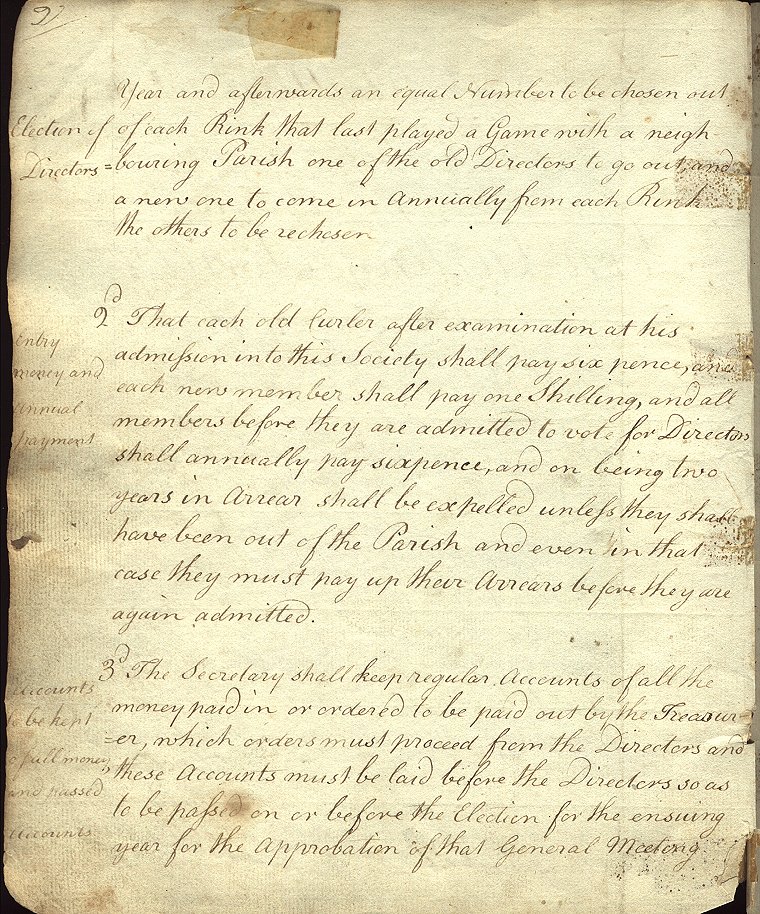 9
Year and afterwards an equal Number to be chosen out
Election of
of each Rink that last played a Game with a neigh-
Directors
=bouring Parish one of the old Directors to go out, and
a new one to come in Annually from each Rink
the others to be rechosen
2d That each old Curler after examination at his
Entry
admission into this Society shall pay six pence, and
money and
each new member shall pay one Shilling, and all
annual
members before they are admitted to vote for Directors
payment
shall annually pay sixpence, and on being two
years in Arrear shall be expelled unless they shall
have been out of the Parish and even in that
case they must pay up their Arrears before they are
again admitted.
3d The Secretary shall keep regular Accounts of all the
Accounts
money paid in or ordered to be paid out by the Treasur-
to be kept
=er, which orders must proceed from the Directors and
of all money
these Accounts must be laid before the Directors so as
and passed
to be passed on or before the Election for the ensuing
accounts
year for the Approbation of that General Meeting